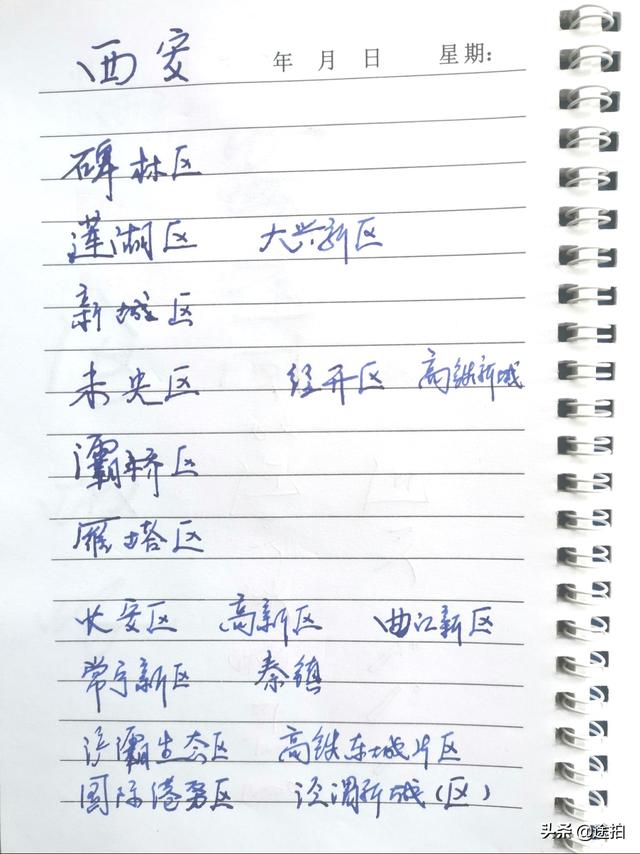 西安 年 月 日 星期:
碑林区
莲湖区 大兴新区
新城区
未央区 经开区 高铁新城
灞桥区
雁塔区
长安区 高新区 曲江新区
常宁新区 秦镇
浐灞生态区 高铁东城片区
国际港务区 泾渭新城(区)
头条 @途拍